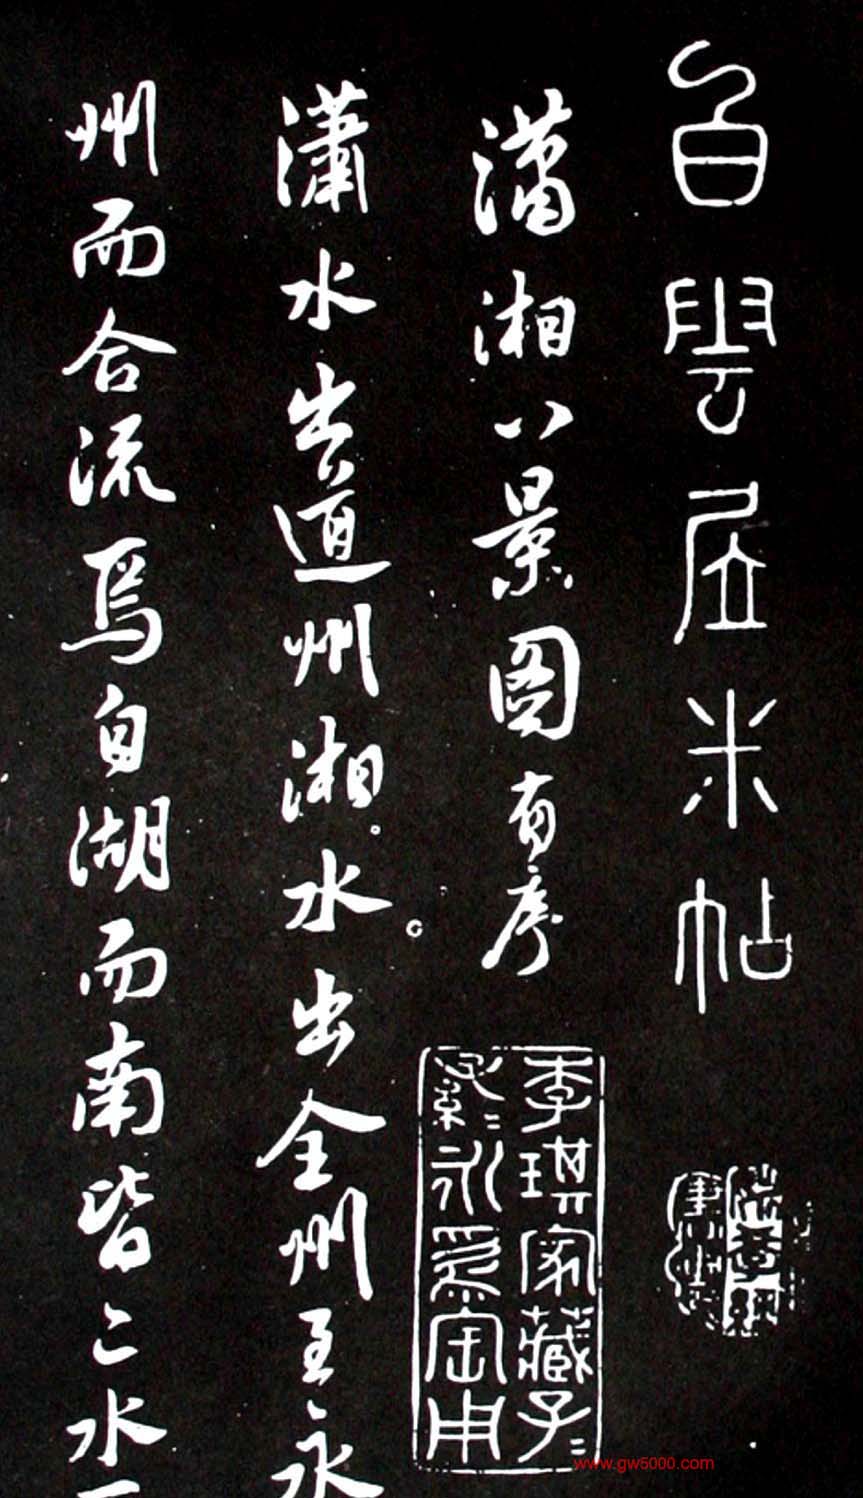 白雲居米帖
瀟湘八景圖有序
家藏子=
孫=永爲宝用
瀟水出道州湘水出全州至永
州而合流焉自湖而南皆二水
www.gw5000.com